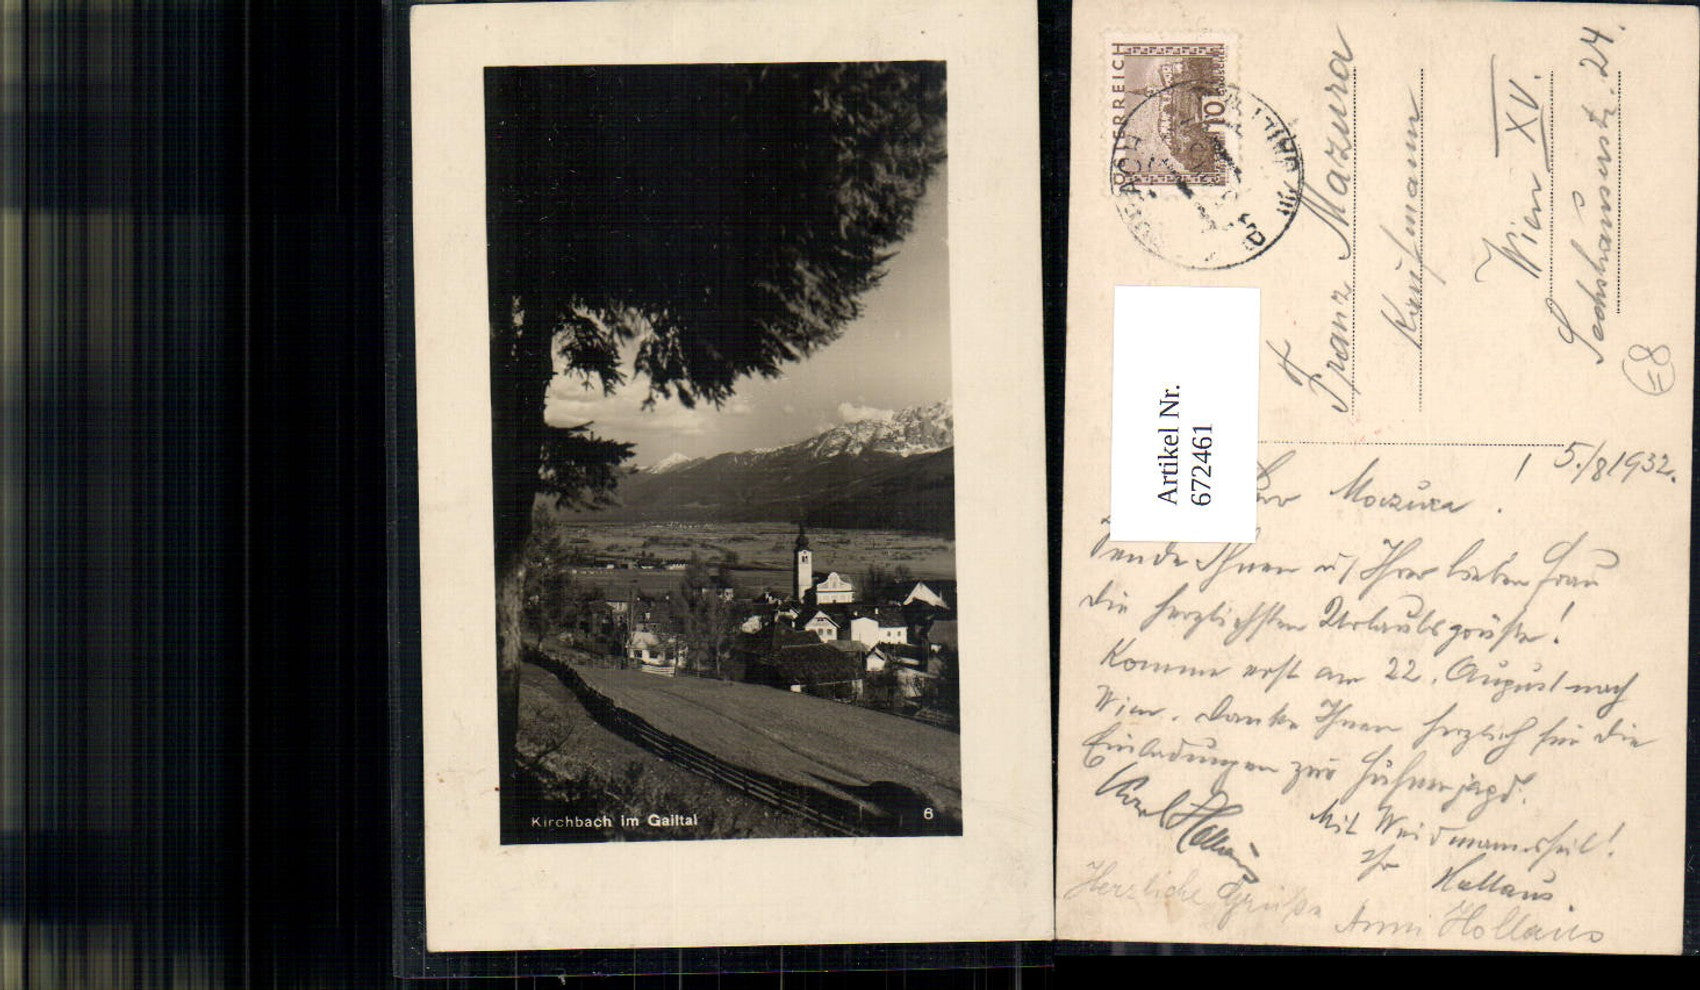 Kirchbach im Gailtal
6
ÖSTERREICH
10
Franz Mazura
Kaufmann
Wien XV.
Sechshauserstr. 24.
8
Artikel Nr.
672461
5./8 1932.
Herr Mazura.
Sende Ihnen u. Ihrer lieben Frau
die herzlichsten Urlaubsgrüße!
Komme erst am 22. August nach
Wien. Danke Ihnen herzlich für die
Einladungen zur Hühnerjagd.
Mit Weidmannsheil!
Ihr Hollaus.
Karl Hollaus
Herzliche Grüße Anni Hollaus